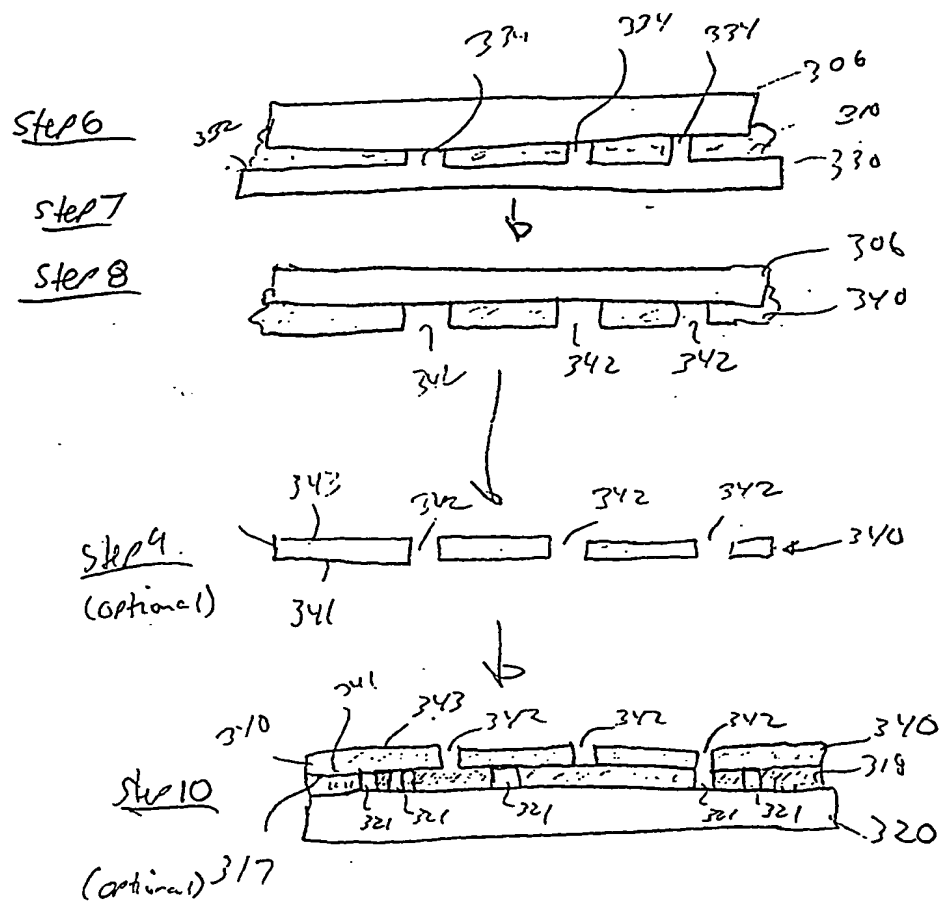 334 334 334
306
Step 6
332
310
330
Step 7
Step 8
306
340
342 342 342
343 342 342 342
Step 9
340
(optional)
341
341 343 342 342 342
340 340
318
Step 10
321 321 321 321 321
320
(optional) 317